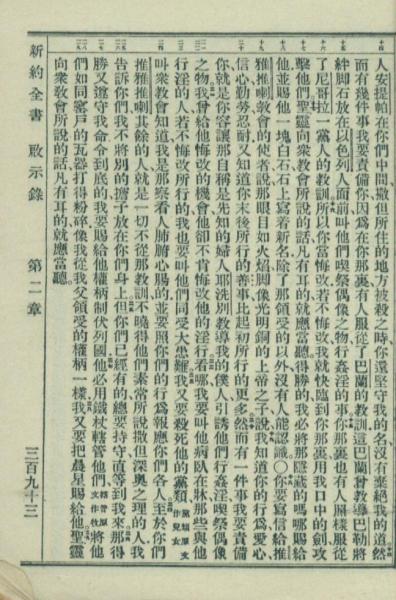 人安提帕在你們中間撒但所住的地方被殺之時你還堅守我的名沒有棄絕我的道然
而有幾件事我要責備你因爲在你那裏有人服從了巴蘭的教訓這巴蘭曾教導巴勒將
絆脚石放在以色列人面前叫他們喫祭偶像之物行姦淫的事你那裏也有人照樣服從
了尼哥拉一黨人的教訓所以你當悔改若不悔改我就快臨到你那裏用我口中的劍攻
擊他們聖靈向衆敎會所說的話凡有耳的就應當聽得勝的我必將那隱藏的嗎哪賜給
他並賜給他一塊白石石上寫着新名除了那領受的以外沒有人能認識〇你要寫信給推
雅推喇敎會的使者說那眼目如火焰脚像光明銅的上帝之子說我知道你的行爲愛心
信心勤勞忍耐又知道你末後所行的善事比起初所行的更多然而有一件事我要責備
你就是你容讓那自稱是先知的婦人耶洗別教導我的僕人引誘他們行姦淫喫祭偶像
之物我曾給他悔改的機會他卻不肯悔改他的淫行看哪我要叫他病臥在牀那些與他
行淫的人若不悔改所行的我也要叫他們同受大患難我又要殺死他的黨類黨類原文作兒女
叫衆敎會知道我是那察看人肺腑心腸的並要照你們的行爲報應你們各人至於你們
推雅推喇其餘的人就是一切不從那教訓不曉得他們素常所說撒但深奧之理的人我
告訴你們我不將別的擔子放在你們身上但你們已經有的總要持守直等到我來那得
勝又遵守我命令到底的我要賜給他權柄制伏列國他必用鐵杖轄管他們轄管原文作牧將他
們如同窰戶的瓦器打得粉碎像我從我父領受的權柄一樣我又要把晨星賜給他聖靈
向衆敎會所說的話凡有耳的就應當聽
新約全書 啟示錄 第二章 三百九十三